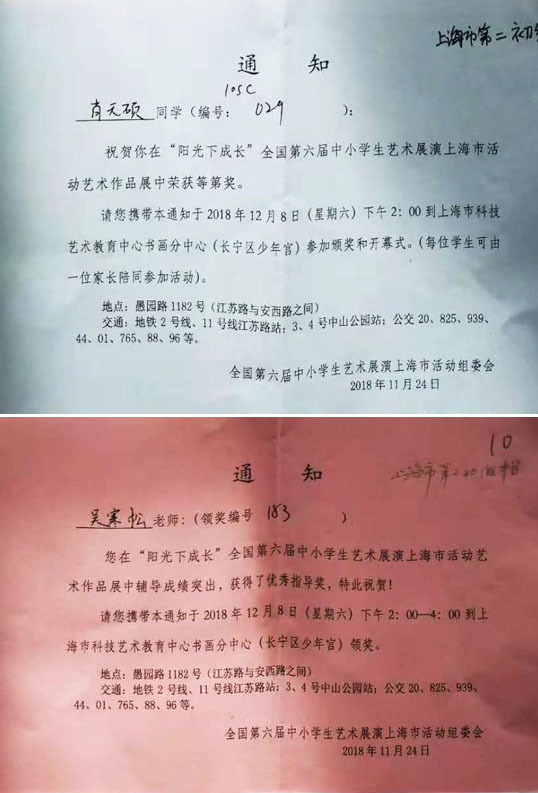 上海市第二初级
通 知
105C
肖天硕 同学（编号： 029 ）：
祝贺你在“阳光下成长”全国第六届中小学生艺术展演上海市活
动艺术作品展中荣获等第奖。
请您携带本通知于2018年12月8日（星期六）下午2：00到上海市科技
艺术教育中心书画分中心（长宁区少年宫）参加颁奖和开幕式。（每位学生可由
一位家长陪同参加活动）。
地点：愚园路1182号（江苏路与安西路之间）
交通：地铁2号线、11号线江苏路站；3、4号中山公园站；公交20、825、939、
44、01、765、88、96等。
全国第六届中小学生艺术展演上海市活动组委会
2018年11月24日
10
上海市第二初级中学
通 知
吴寒松 老师：（领奖编号 183 ）
您在“阳光下成长”全国第六届中小学生艺术展演上海市活动艺
术作品展中辅导成绩突出，获得了优秀指导奖，特此祝贺！
请您携带本通知于2018年12月8日（星期六）下午2：00—4：00到上
海市科技艺术教育中心书画分中心（长宁区少年宫）领奖。
地点：愚园路1182号（江苏路与安西路之间）
交通：地铁2号线、11号线江苏路站；3、4号中山公园站；公交20、825、939、
44、01、765、88、96等。
全国第六届中小学生艺术展演上海市活动组委会
2018年11月24日